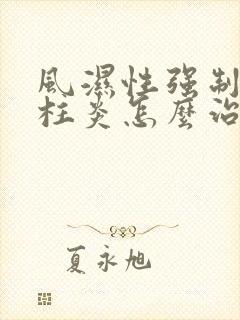 風濕性强制
柱炎怎麽治
夏永旭